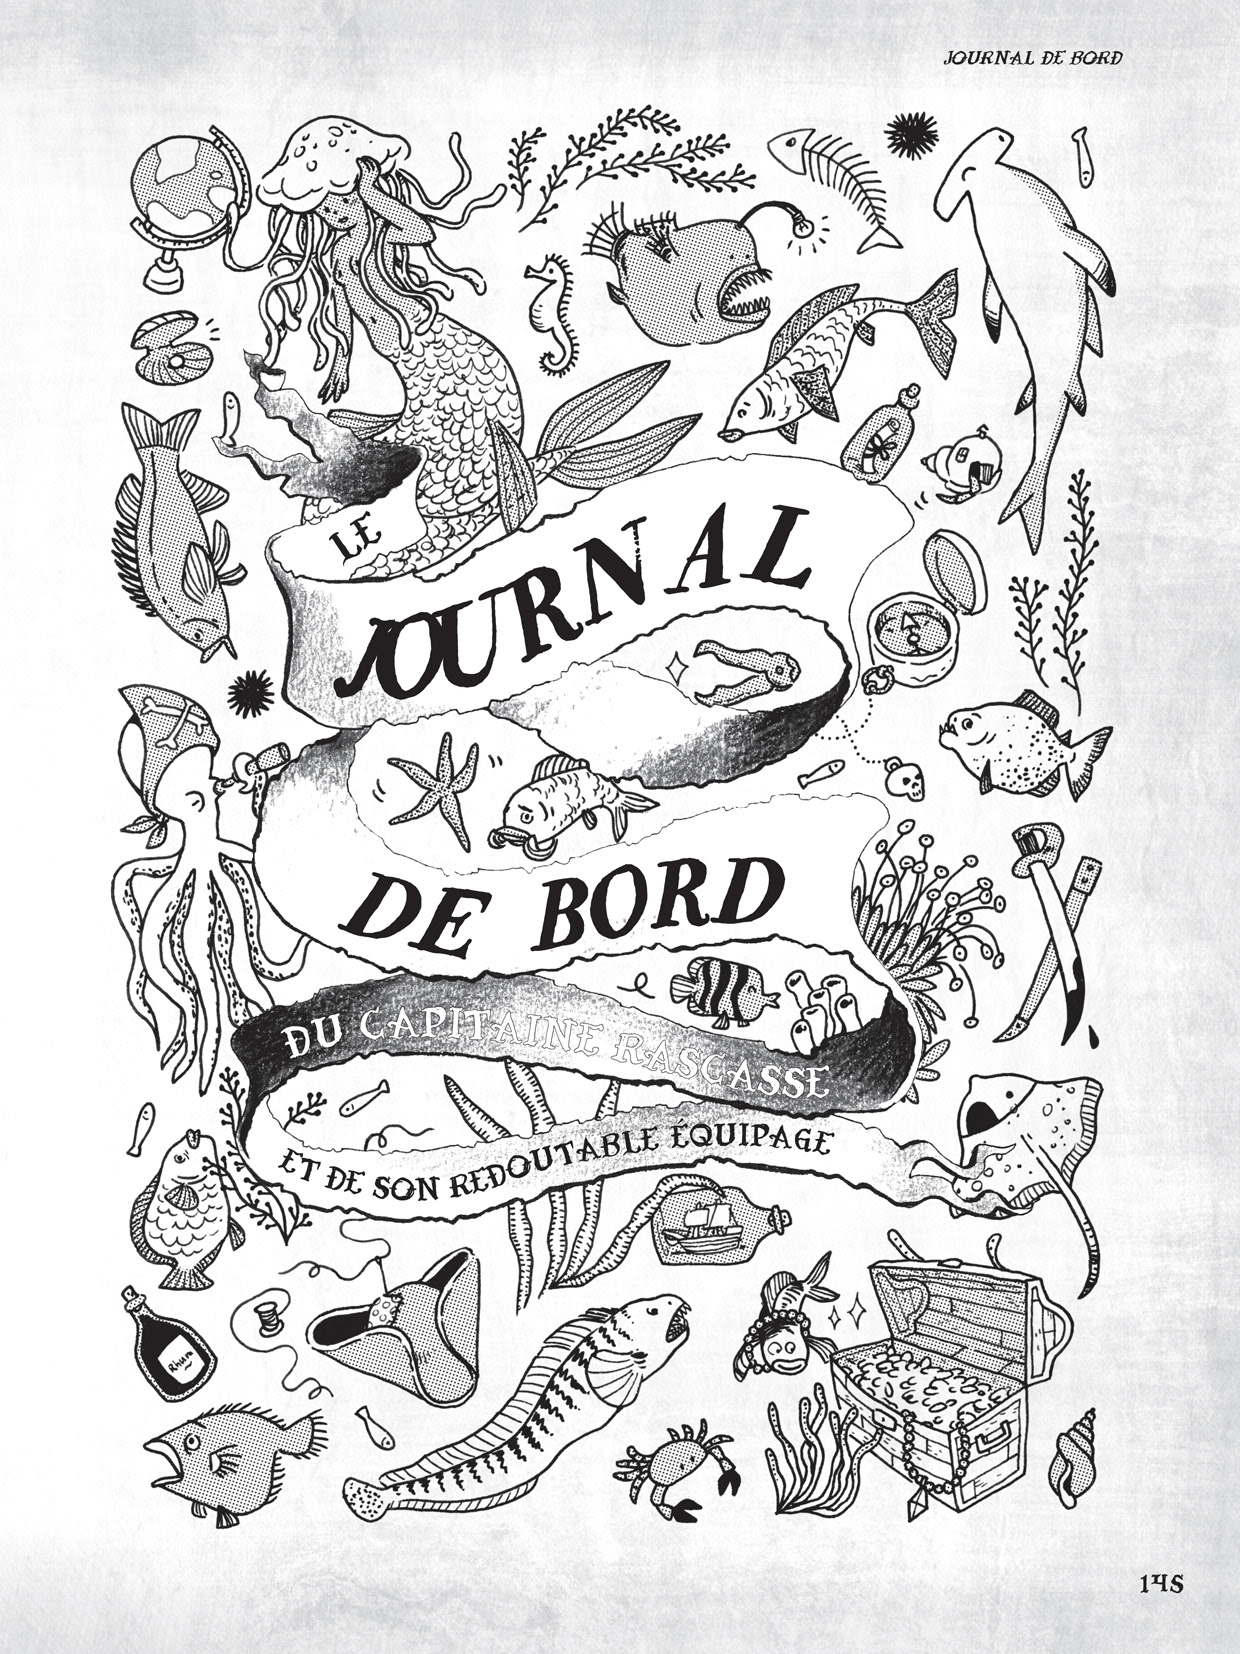 JOURNAL DE BORD
LE
JOURNAL
DE BORD
DU CAPITAINE RASCASSE
ET DE SON REDOUTABLE ÉQUIPAGE
Rhum
145